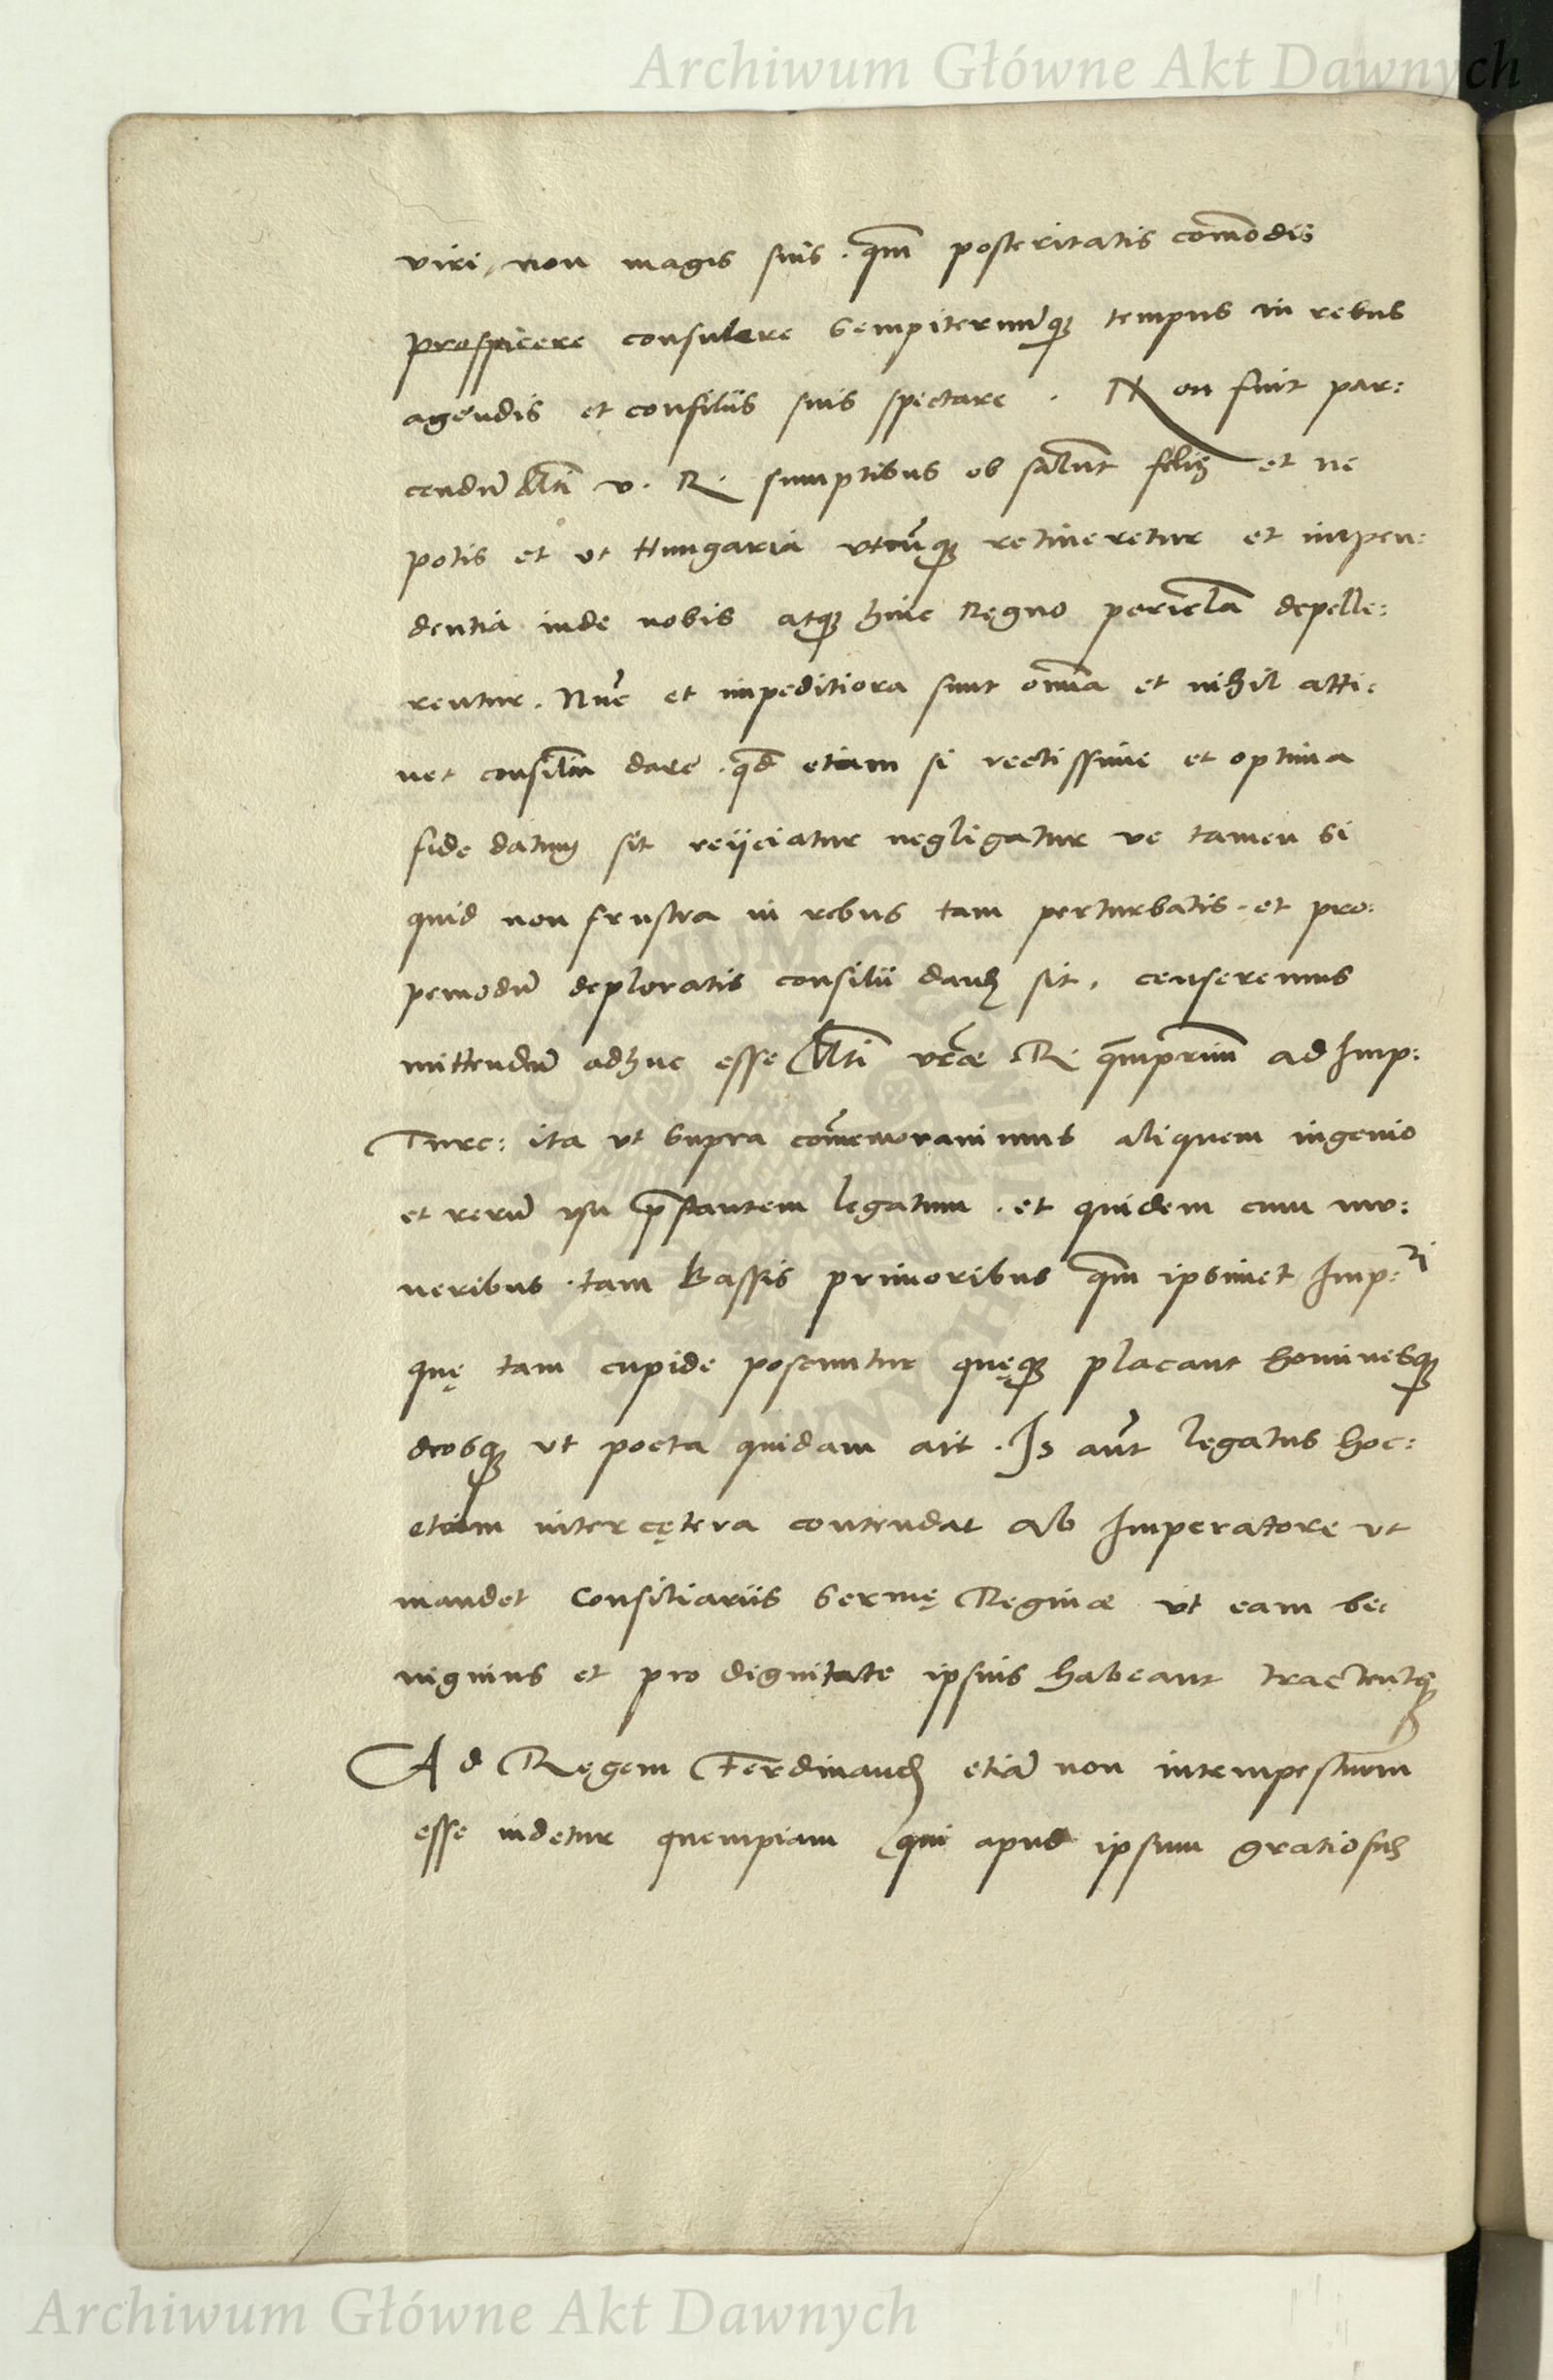 Archiwum Główne Akt Dawnych
viri, non magis suis. qm̄ posteritatis com̄odis
prospicere consulere sempiternūq₃ tempus in rebus
agendis et consiliis suis spectare. Non fuit par:
cendū Mti v. R. sumptibus ob salut̄ filiȩ et ne
potis et ut Hungaria utcūq₃ retineretur et impen:
dentia inde nobis atq₃ huic Regno pericl̄a depelle:
rentur. Nūc et impeditiora sunt om̄ia et nihil atti:
net consiliū dare. qd̄ etiam si rectissime et optima
fide datum sit reijciatur negligatur ve tamen si
quid non frustra in rebus tam perturbatis. et pro:
pemodū deploratis consilii dand sit, censeremus
mittendū adhuc esse Mti vrāe R. qm̄primū ad Imp:
Turc: ita ut supra com̄emoravimus aliquem ingenio
et rerū usu p̄stantem legatum. et quidem cum mu:
neribus. tam Bassis primoribus qm̄ ipsimet Imp:ri
quę tam cupide poscuntur quęq₃ placant hominesq₃
deosq₃ ut poeta quidam ait. Is aūt legatus hoc:
etiam inter cętera contendat ab Imperatore ut
mandet Consiliariis sermę Reginæ ut eam be:
nignius et pro dignitate ipsius habeant tractentq₃
Ad Regem Ferdinand etiā non intempestivum
esse videtur quempiam (qui apud ipsum gratiosus
Archiwum Główne Akt Dawnych